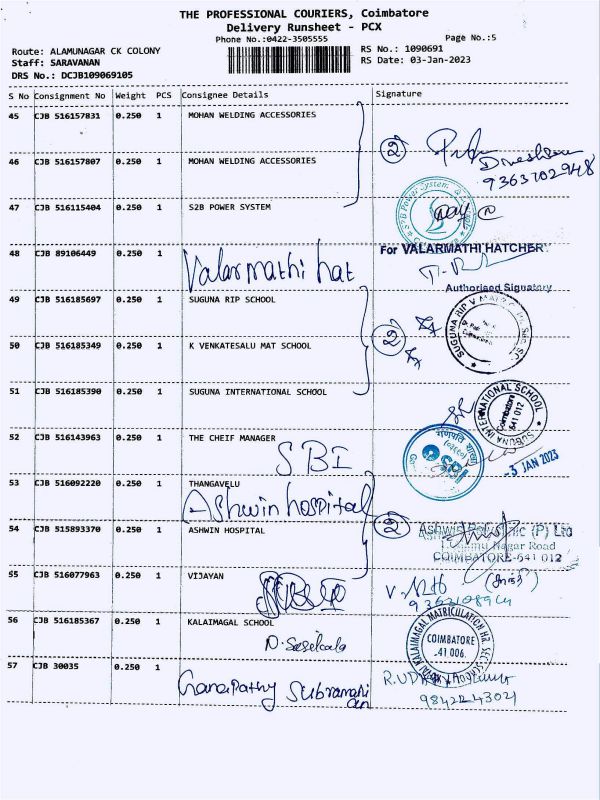 THE PROFESSIONAL COURIERS, Coimbatore
Delivery Runsheet - PCX
Phone No.:0422-3505555
Page No.:5
Route: ALAMUNAGAR CK COLONY
RS No.: 1090691
Staff: SARAVANAN
RS Date: 03-Jan-2023
DRS No.: DCJB109069105
S No Consignment No Weight PCS Consignee Details Signature
45 CJB 516157831 0.250 1 MOHAN WELDING ACCESSORIES
2
Dineshkumar
9363702948
46 CJB 516157807 0.250 1 MOHAN WELDING ACCESSORIES
47 CJB 516115404 0.250 1 S2B POWER SYSTEM
48 CJB 89106449 0.250 1 Valarmathi hat
For VALARMATHI HATCHERY
Authorised Signatory
49 CJB 516185697 0.250 1 SUGUNA RIP SCHOOL
2
SUGUNA RIP V
50 CJB 516185349 0.250 1 K VENKATESALU MAT SCHOOL
51 CJB 516185390 0.250 1 SUGUNA INTERNATIONAL SCHOOL
SUGUNA INTERNATIONAL SCHOOL
Coimbatore
641 012
52 CJB 516143963 0.250 1 THE CHEIF MANAGER
SBI
SBI
-3 JAN 2023
53 CJB 516092220 0.250 1 THANGAVELU
Ashwin hospital
2
54 CJB 515893370 0.250 1 ASHWIN HOSPITAL
Ashwin Polyclinic (P) Ltd
Nagar Road
COIMBATORE-641 012
55 CJB 516077963 0.250 1 VIJAYAN
56 CJB 516185367 0.250 1 KALAIMAGAL SCHOOL
KALAIMAGAL MATRICULATION HR. SEC.
COIMBATORE
41 006.
57 CJB 30035 0.250 1
Ganapathy Subramanian
984224302